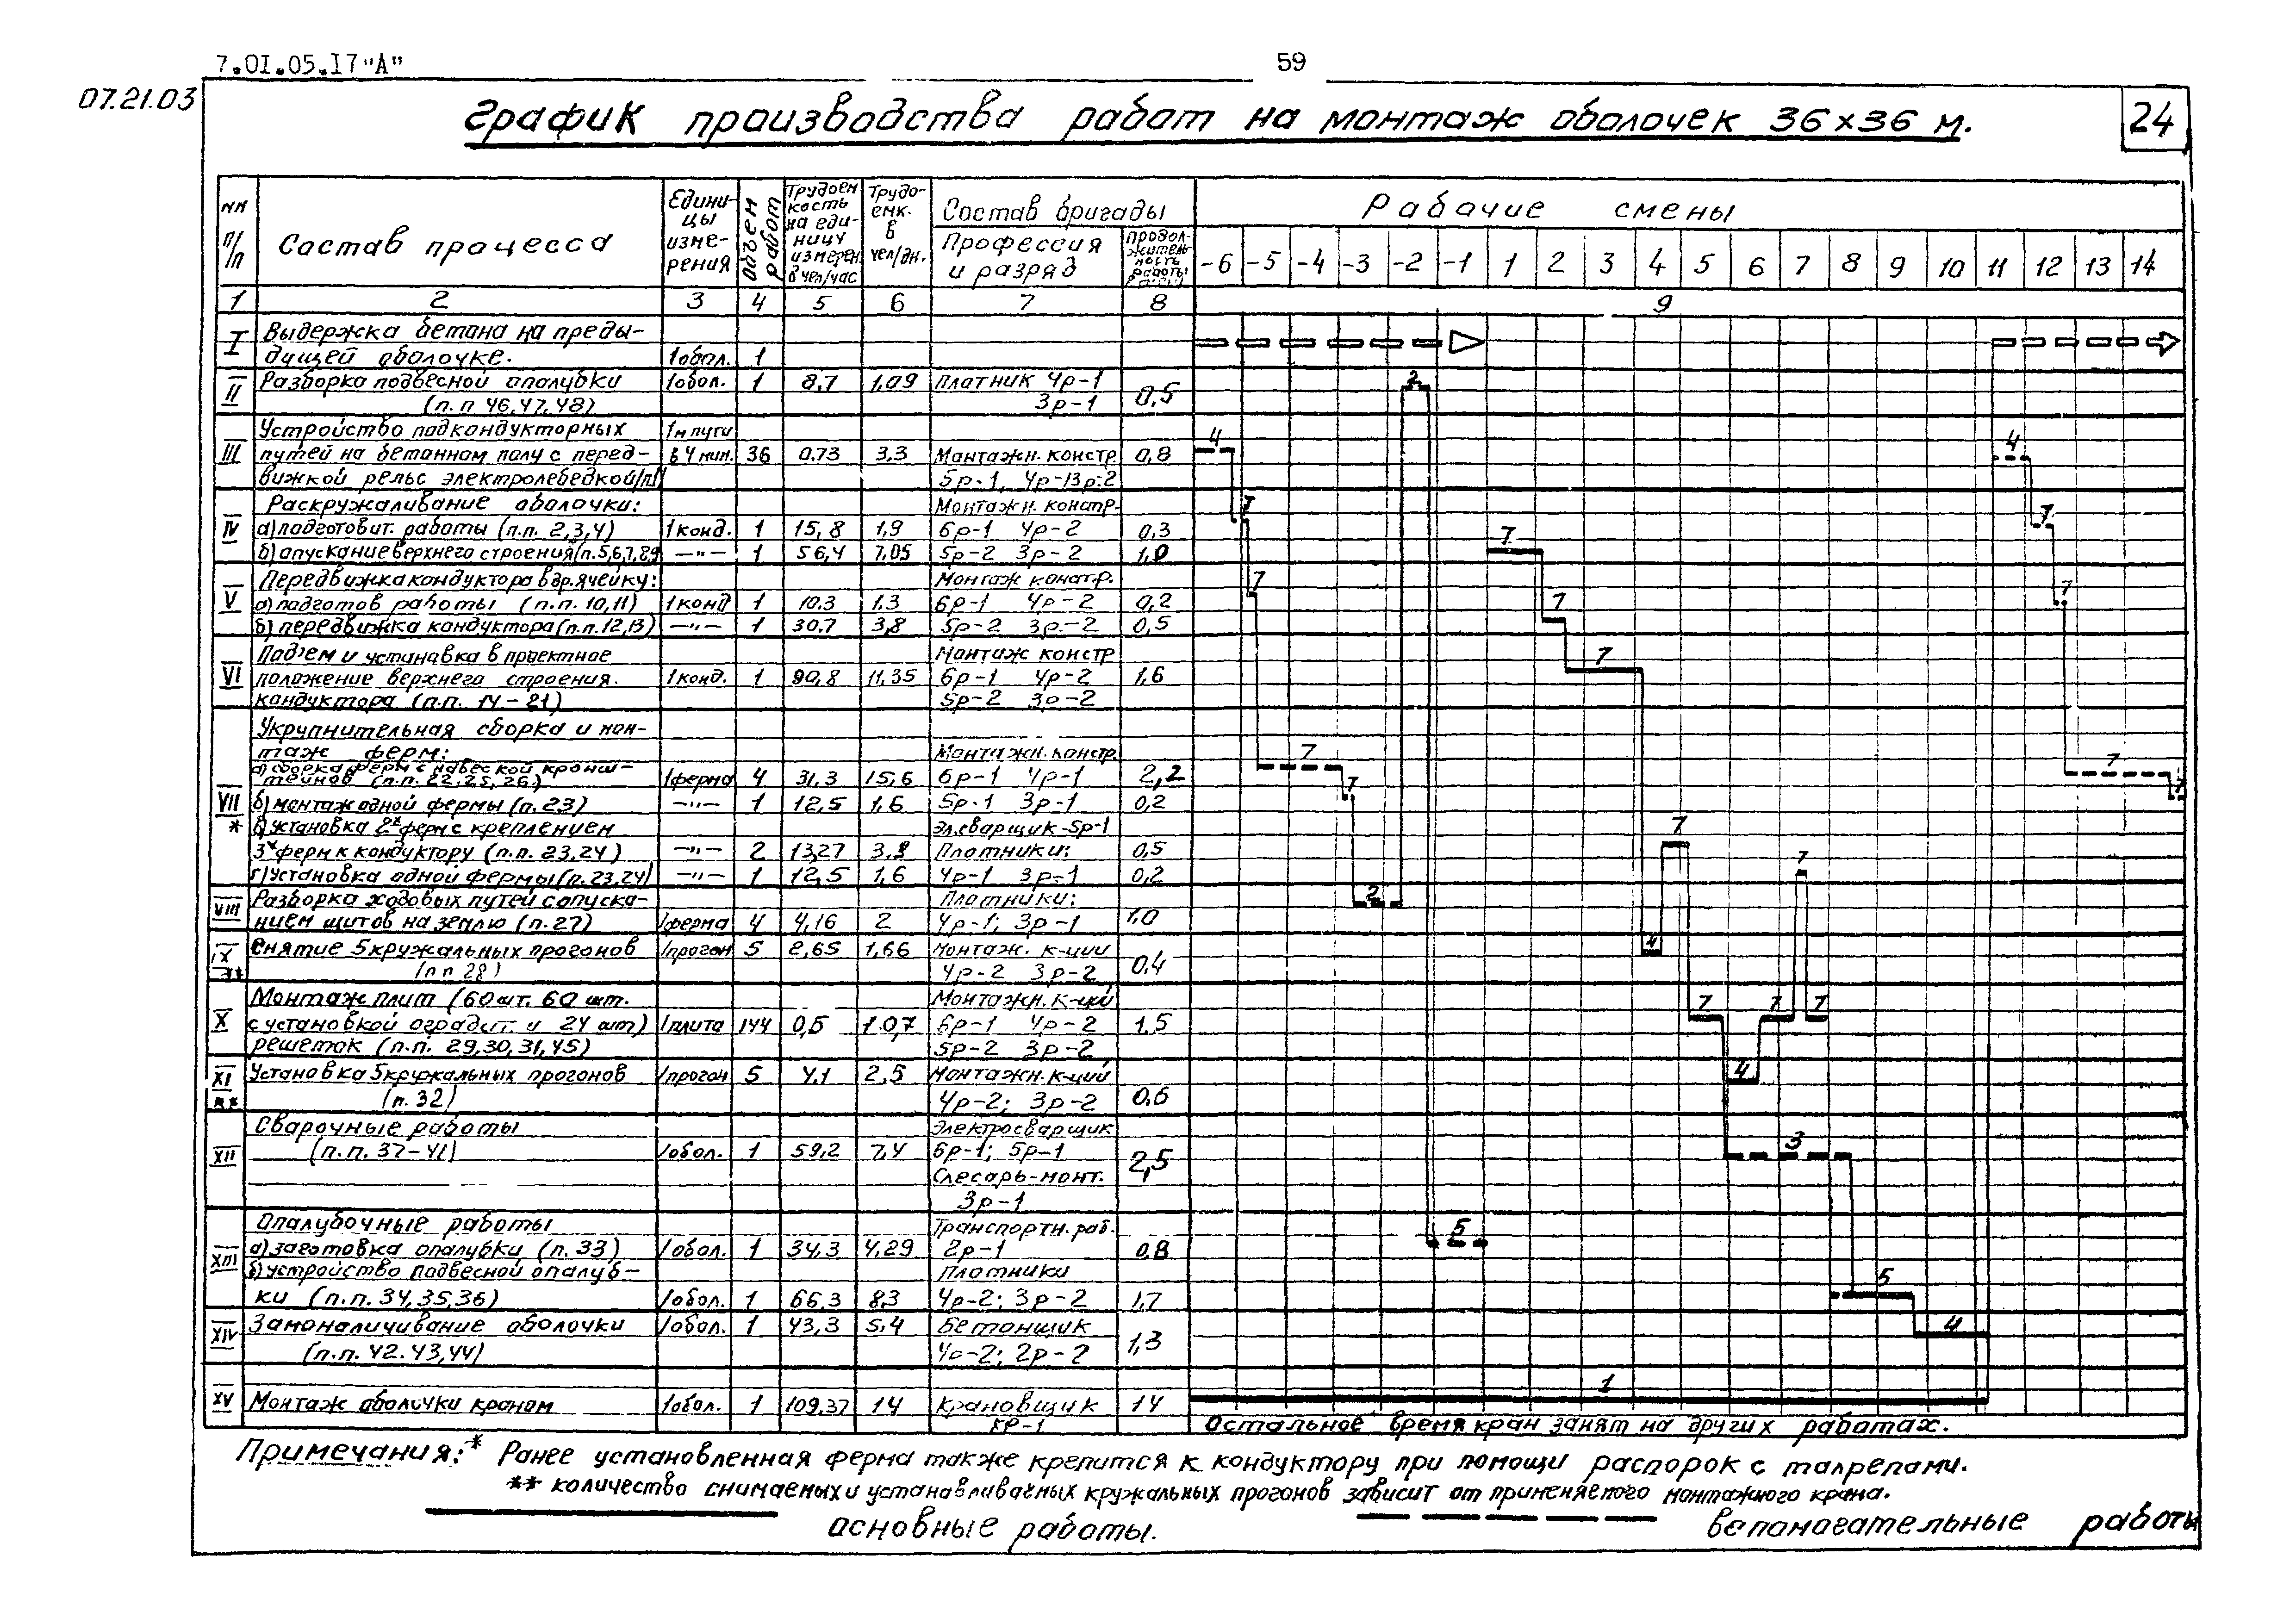 7.01.05.17"А"
59
07.21.03
График производства работ на монтаж оболочек 36×36 м.
24
NN п/п
Состав процесса
Едини-цы изме-рения
Объем работ
Трудоем кость на еди-ницу измерен. в чел/час
Трудо-емк. в чел/дн.
Состав бригады
Профессия и разряд
Продол-житель-ность работы
Рабочие смены
-6 -5 -4 -3 -2 -1 1 2 3 4 5 6 7 8 9 10 11 12 13 14
1 2 3 4 5 6 7 8 9
I Выдержка бетона на преды-
дущей оболочке. 1обол. 1
II Разборка подвесной опалубки 1обол. 1 8,7 1,09 Плотник 4р-1
(п.п 46,47,48) 3р-1 0,5
2
Устройство подкондукторных 1м пути
III путей на бетонном полу с перед- в 4 нит. 36 0,73 3,3 Монтажн. констр. 0,8
4 4
вижкой рельс электролебедкой/п1/ 5р-1, 4р-1 3р-2
Раскружаливание оболочки: Монтажн. констр.
IV а)подготовит. работы (п.п. 2,3,4) 1конд. 1 15,8 1,9 6р-1 4р-2 0,3
7 7
б)опускание верхнего строения(п.5,6,7,8,9 —"— 1 56,4 7,05 5р-2 3р-2 1,0
7
Передвижка кондуктора в др.ячейку: Монтаж констр.
V а)подготов работы (п.п. 10,11) 1конд 1 10.3 1.3 6р-1 4р-2 0,2
7 7 7
б) передвижка кондуктора(п.п.12,13) —"— 1 30.7 3,8 5р-2 3р-2 0,5
Подъем и установка в проектное Монтаж констр
VI положение верхнего строения. 1конд. 1 90,8 11,35 6р-1 4р-2 1,6
7
кондуктора (п.п. 14-21) 5р-2 3р-2
Укрупнительная сборка и мон-
таж ферм: Монтажн. констр.
а) сборка ферм с навеской кронш-
VII тейнов (п.п. 22.25,26) 1ферма 4 31.3 15,6 6р-1 4р-1 2,2
7 7
* б)монтаж одной фермы (п.23) —"— 1 12,5 1,6 5р-1 3р-1 0,2
7 7
в)установка 2х ферм с креплением Эл.сварщик-5р-1
3х ферм к кондуктору (п.п. 23,24) —"— 2 13,27 Плотники: 0,5
7
г)установка одной фермы(п.23,24) —"— 1 12,5 1,6 4р-1 3р-1 0,2
7
Разборка ходовых путей с опуска- Плотники:
VIII нием щитов на землю (п.27) 1ферма 4 4,16 2 4р-1; 3р-1 1,0
2
IX Снятие 5 кружальных прогонов 1прогон 5 2,65 1,66 Монтаж. к-ции
** (п п 28) 4р-2 3р-2 0,4
4
Монтаж плит (60шт. 60 шт. Монтажн. к-ций
X с установкой оградит. и 24 шт) 1плита 144 0,5 1 0,7 6р-1 4р-2 1,5
7 7 7
решеток (п.п. 29,30,31,45) 5р-2 3р-2
XI Установка 5кружальных прогонов 1прогон 5 4.1 2,5 Монтажн. к-ций
** (п.32) 4р-2; 3р-2 0,6
4
Сварочные работы Электросварщик
XII (п.п. 37-41) 1обол. 1 59,2 7,4 6р-1; 5р-1 2,5
3
Слесарь-монт.
3р-1
Опалубочные работы Транспортн. раб.
XIII а)заготовка опалубки (п.33) 1обол. 1 34,3 4,29 2р-1 0,8
5
б)устройство подвесной опалуб- Плотники
ки (п.п.34,35,36) 1обол. 1 66.3 8.3 4р-2; 3р-2 1,7
5
XIV Замоналичивание оболочки 1обол. 1 43,3 5.4 Бетонщик
(п.п. 42.43,44) 4р-2; 2р-2 1,3
4
XV Монтаж оболочки краном 1обол. 1 109.37 14 Крановщик 14
1
кр-1
Остальное время кран занят на других работах.
Примечания: * Ранее установленная ферма также крепится к кондуктору при помощи распорок с талрепами.
** количество снимаемых и устанавливаемых кружальных прогонов зависит от применяемого монтажного крана.
основные работы.
вспомогательные работы